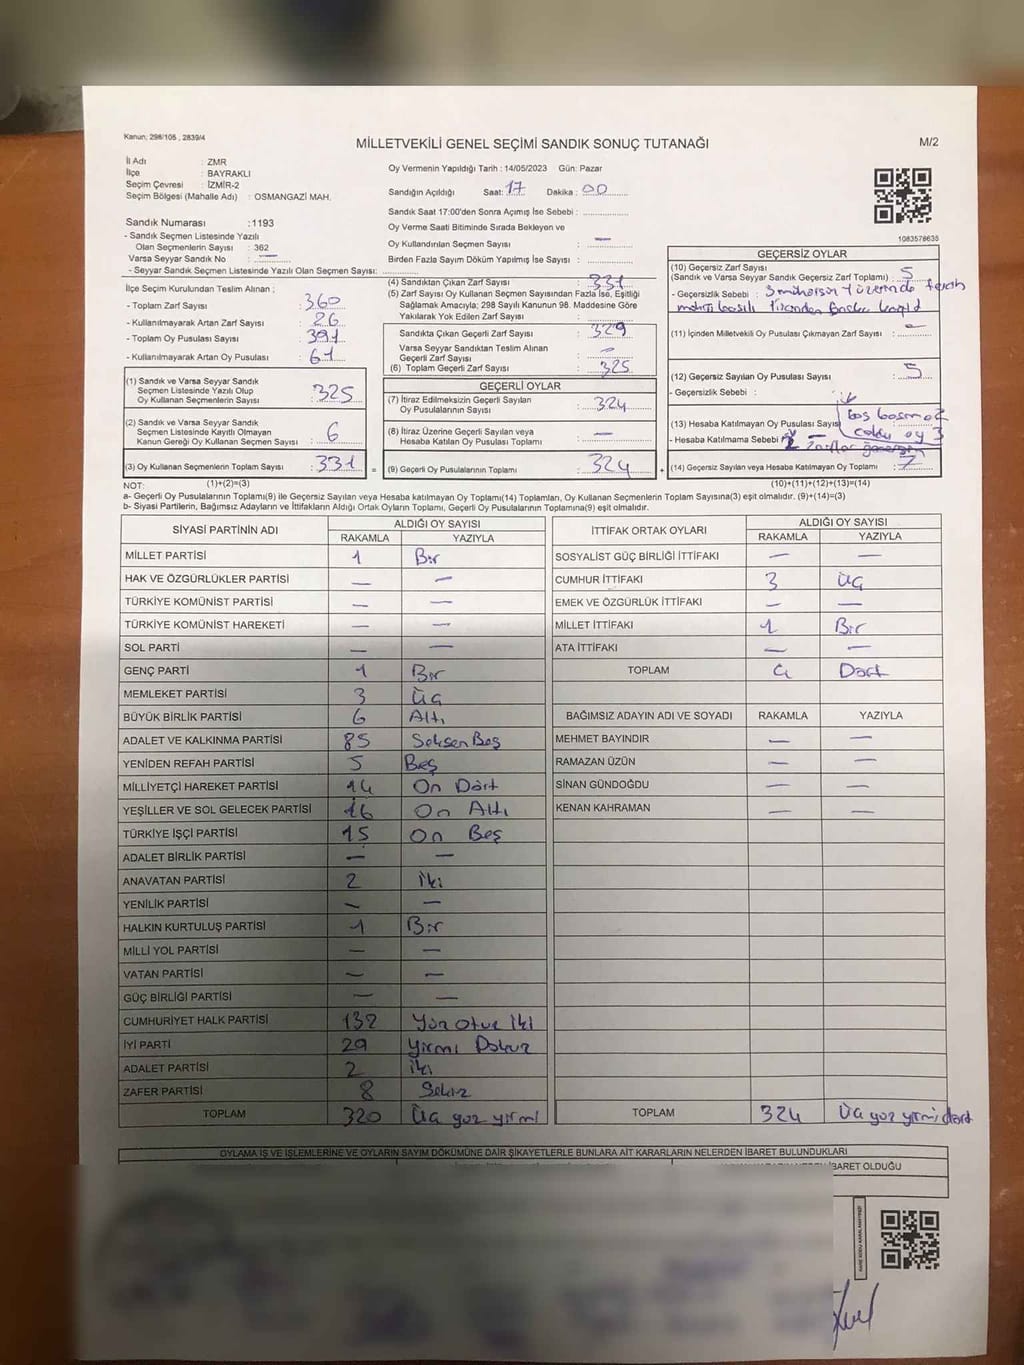 Kanun: 298/105 , 2839/4
MİLLETVEKİLİ GENEL SEÇİMİ SANDIK SONUÇ TUTANAĞI
M/2
İl Adı : ZMR
İlçe : BAYRAKLI
Seçim Çevresi : İZMİR-2
Seçim Bölgesi (Mahalle Adı) : OSMANGAZİ MAH.
Oy Vermenin Yapıldığı Tarih : 14/05/2023 Gün: Pazar
Sandığın Açıldığı Saat: 17 Dakika : 00
Sandık Saat 17:00'den Sonra Açımış İse Sebebi :
Oy Verme Saati Bitiminde Sırada Bekleyen ve
Oy Kullandırılan Seçmen Sayısı : —
Birden Fazla Sayım Döküm Yapılmış İse Sayısı :
Sandık Numarası :1193
- Sandık Seçmen Listesinde Yazılı
Olan Seçmenlerin Sayısı : 362
Varsa Seyyar Sandık No : —
- Seyyar Sandık Seçmen Listesinde Yazılı Olan Seçmen Sayısı:
1083578635
İlçe Seçim Kurulundan Teslim Alınan ;
- Toplam Zarf Sayısı : 360
- Kullanılmayarak Artan Zarf Sayısı : 26
- Toplam Oy Pusulası Sayısı : 391
- Kullanılmayarak Artan Oy Pusulası : 61
(1) Sandık ve Varsa Seyyar Sandık
Seçmen Listesinde Yazılı Olup
Oy Kullanan Seçmenlerin Sayısı : 325
(2) Sandık ve Varsa Seyyar Sandık
Seçmen Listesinde Kayıtlı Olmayan
Kanun Gereği Oy Kullanan Seçmen Sayısı : 6
(3) Oy Kullanan Seçmenlerin Toplam Sayısı : 331 =
(4) Sandıktan Çıkan Zarf Sayısı : 331
(5) Zarf Sayısı Oy Kullanan Seçmen Sayısından Fazla İse, Eşitliği
Sağlamak Amacıyla; 298 Sayılı Kanunun 98. Maddesine Göre
Yakılarak Yok Edilen Zarf Sayısı :
Sandıkta Çıkan Geçerli Zarf Sayısı : 329
Varsa Seyyar Sandıktan Teslim Alınan
Geçerli Zarf Sayısı : —
(6) Toplam Geçerli Zarf Sayısı : 325
GEÇERLİ OYLAR
(7) İtiraz Edilmeksizin Geçerli Sayılan
Oy Pusulalarının Sayısı : 324
(8) İtiraz Üzerine Geçerli Sayılan veya
Hesaba Katılan Oy Pusulası Toplamı : —
(9) Geçerli Oy Pusulalarının Toplamı : 324 +
GEÇERSİZ OYLAR
(10) Geçersiz Zarf Sayısı
(Sandık ve Varsa Seyyar Sandık Geçersiz Zarf Toplamı) : 5
- Geçersizlik Sebebi : 3 mühürsüz 1 üzerinde tercih
(11) İçinden Milletvekili Oy Pusulası Çıkmayan Zarf Sayısı : —
(12) Geçersiz Sayılan Oy Pusulası Sayısı : 5
- Geçersizlik Sebebi :
(13) Hesaba Katılmayan Oy Pusulası Sayısı
- Hesaba Katılmama Sebebi
(14) Geçersiz Sayılan veya Hesaba Katılmayan Oy Toplamı : 7
NOT: (1)+(2)=(3) (10)+(11)+(12)+(13)=(14)
a- Geçerli Oy Pusulalarının Toplamı(9) ile Geçersiz Sayılan veya Hesaba katılmayan Oy Toplamı(14) Toplamları, Oy Kullanan Seçmenlerin Toplam Sayısına(3) eşit olmalıdır. (9)+(14)=(3)
b- Siyasi Partilerin, Bağımsız Adayların ve İttifakların Aldığı Ortak Oyların Toplamı, Geçerli Oy Pusulalarının Toplamına(9) eşit olmalıdır.
SİYASİ PARTİNİN ADI ALDIĞI OY SAYISI
RAKAMLA YAZIYLA
MİLLET PARTİSİ 1 Bir
HAK VE ÖZGÜRLÜKLER PARTİSİ — —
TÜRKİYE KOMÜNİST PARTİSİ — —
TÜRKİYE KOMÜNİST HAREKETİ — —
SOL PARTİ — —
GENÇ PARTİ 1 Bir
MEMLEKET PARTİSİ 3 Üç
BÜYÜK BİRLİK PARTİSİ 6 Altı
ADALET VE KALKINMA PARTİSİ 85 Seksen Beş
YENİDEN REFAH PARTİSİ 5 Beş
MİLLİYETÇİ HAREKET PARTİSİ 14 On Dört
YEŞİLLER VE SOL GELECEK PARTİSİ 16 On Altı
TÜRKİYE İŞÇİ PARTİSİ 15 On Beş
ADALET BİRLİK PARTİSİ — —
ANAVATAN PARTİSİ 2 İki
YENİLİK PARTİSİ — —
HALKIN KURTULUŞ PARTİSİ 1 Bir
MİLLİ YOL PARTİSİ — —
VATAN PARTİSİ — —
GÜÇ BİRLİĞİ PARTİSİ — —
CUMHURİYET HALK PARTİSİ 132 Yüz Otuz İki
İYİ PARTİ 29 Yirmi Dokuz
ADALET PARTİSİ 2 İki
ZAFER PARTİSİ 8 Sekiz
TOPLAM 320 Üç yüz yirmi
İTTİFAK ORTAK OYLARI ALDIĞI OY SAYISI
RAKAMLA YAZIYLA
SOSYALİST GÜÇ BİRLİĞİ İTTİFAKI — —
CUMHUR İTTİFAKI 3 Üç
EMEK VE ÖZGÜRLÜK İTTİFAKI — —
MİLLET İTTİFAKI 1 Bir
ATA İTTİFAKI — —
TOPLAM 4 Dört
BAĞIMSIZ ADAYIN ADI VE SOYADI RAKAMLA YAZIYLA
MEHMET BAYINDIR — —
RAMAZAN ÜZÜN — —
SİNAN GÜNDOĞDU — —
KENAN KAHRAMAN — —
TOPLAM 324 Üç yüz yirmi dört
OYLAMA İŞ VE İŞLEMLERİNE VE OYLARIN SAYIM DÖKÜMÜNE DAİR ŞİKAYETLERLE BUNLARA AİT KARARLARIN NELERDEN İBARET BULUNDUKLARI
İBARET OLDUĞU